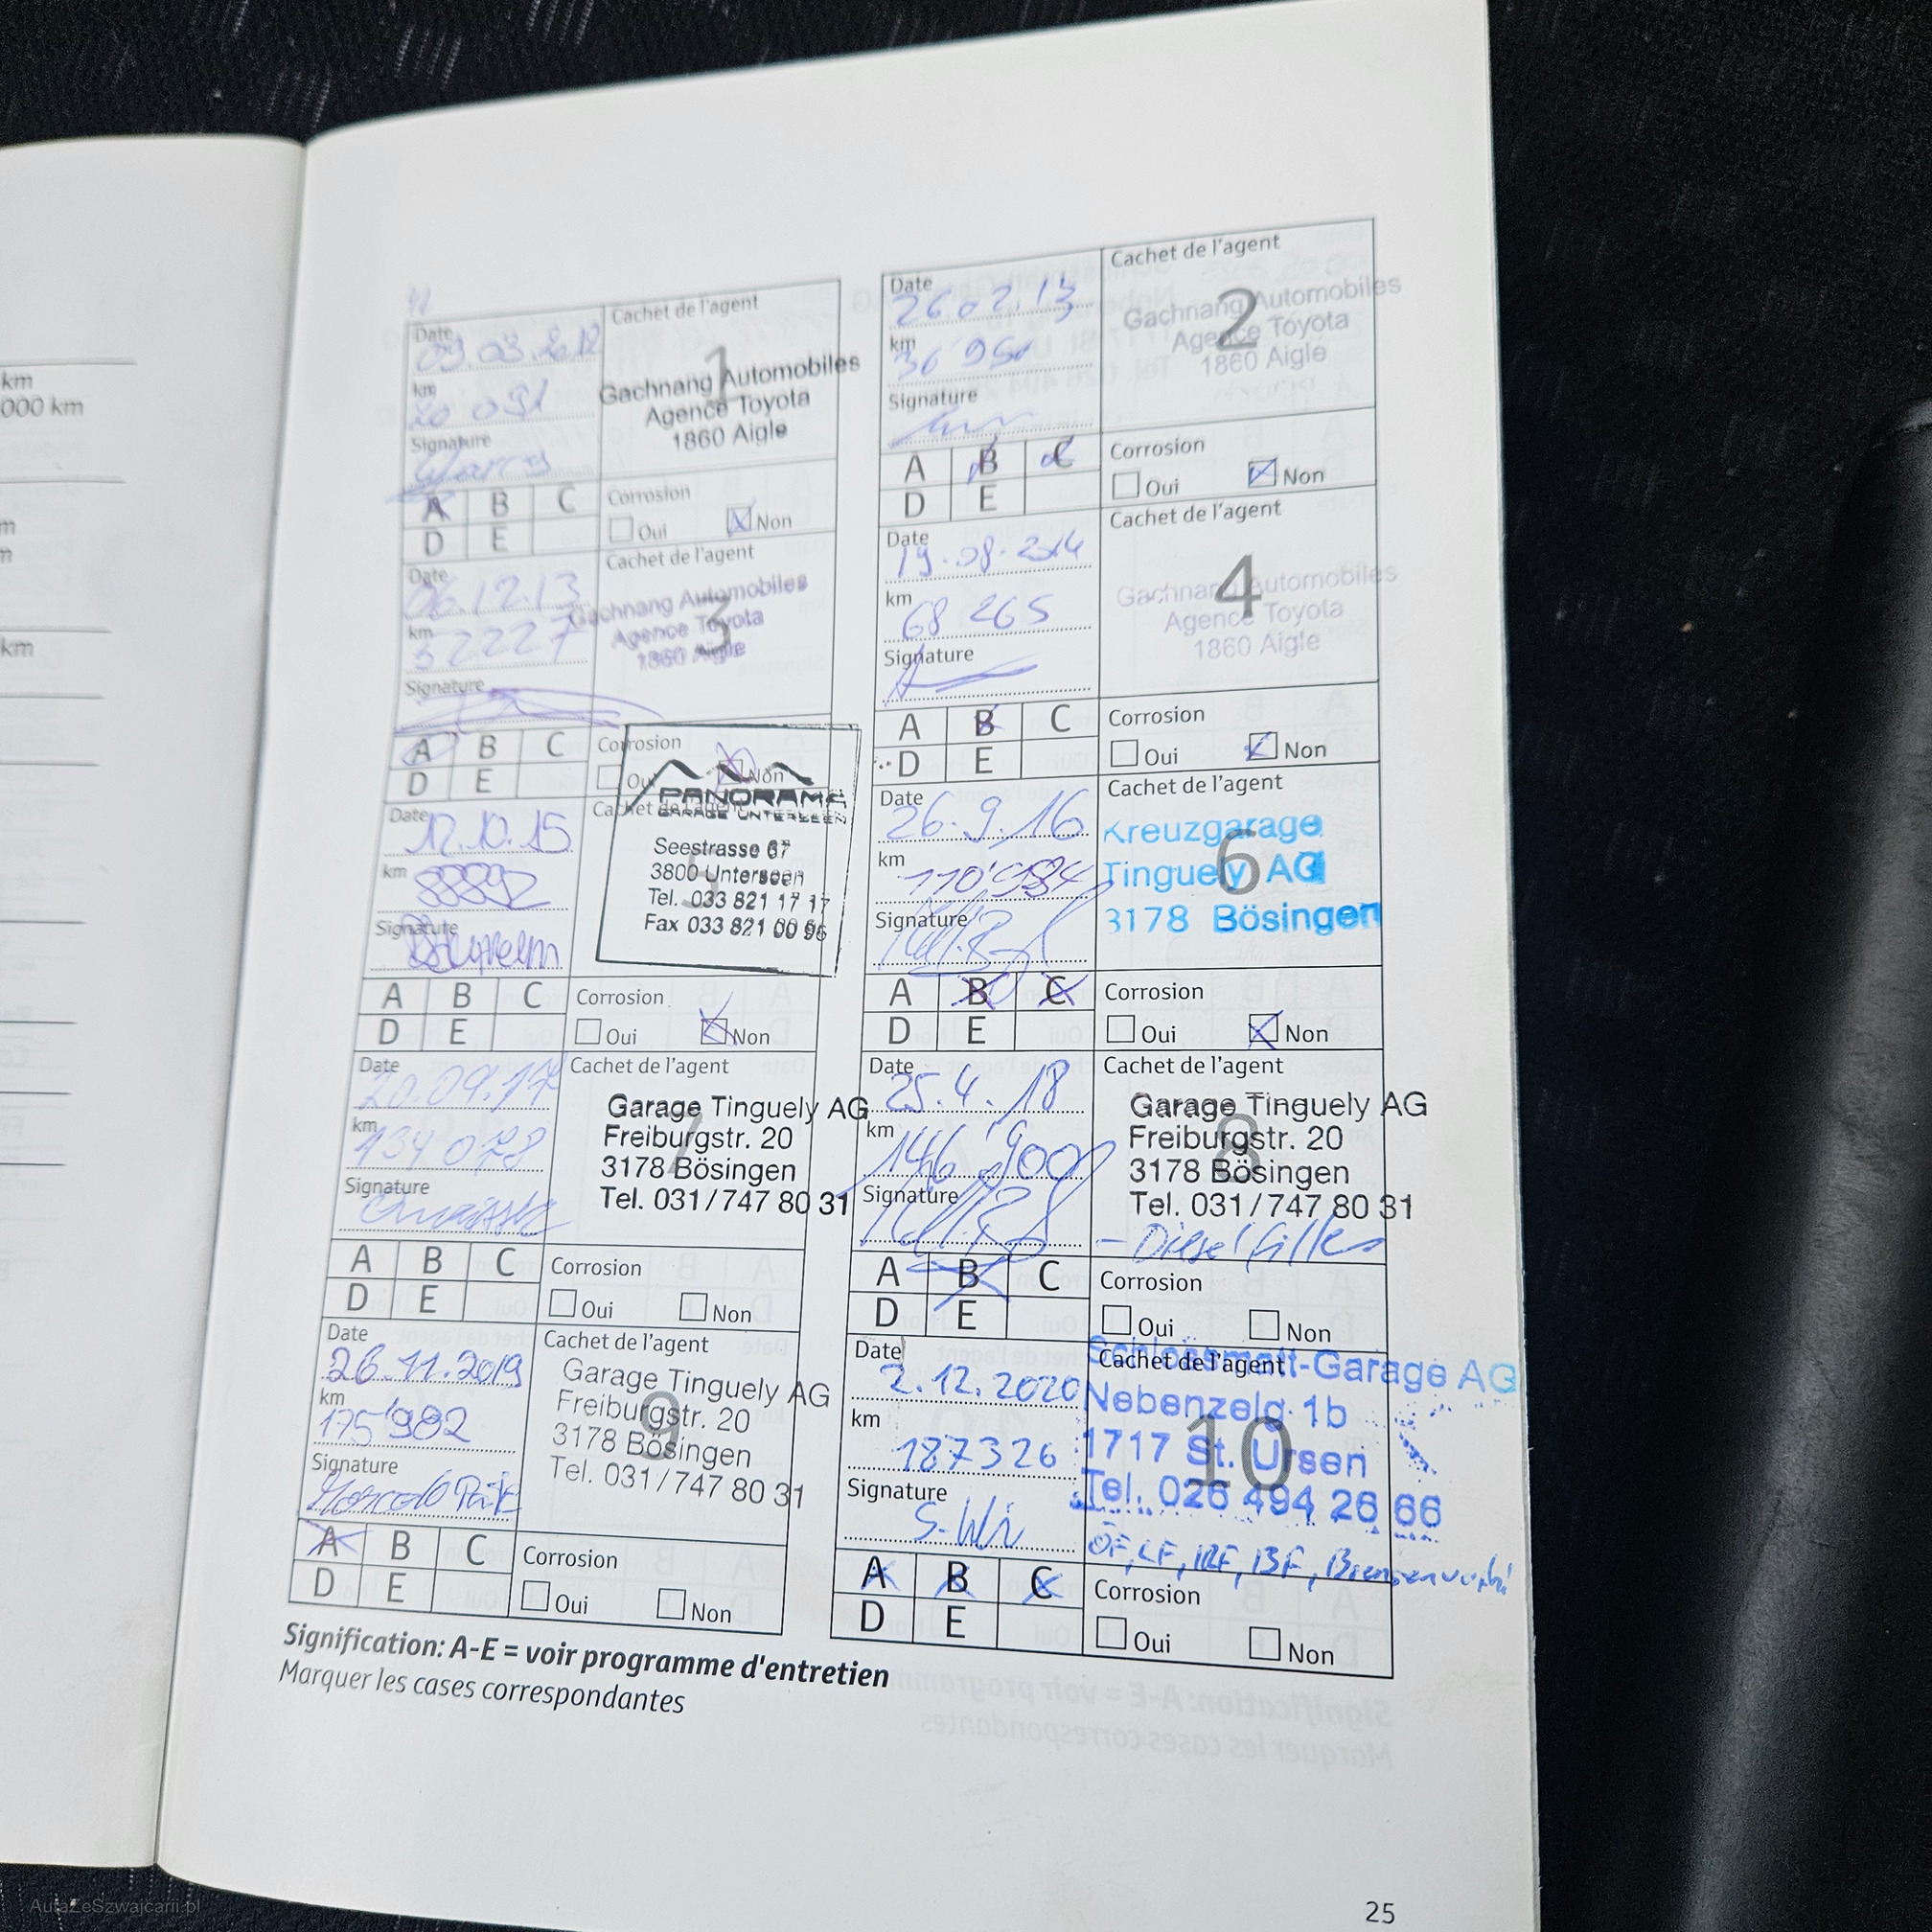 km
000 km
m
n
km
Date
09.03.2012
km
20 091
Signature
Cachet de l'agent
1
Gachnang Automobiles
Agence Toyota
1860 Aigle
A B C
D E
Corrosion
Oui Non
Date
26 02.13
km
36'950
Signature
Cachet de l'agent
2
Gachnang Automobiles
Agence Toyota
1860 Aigle
A B C
D E
Corrosion
Oui Non
Date
06.12.13
km
52227
Signature
Cachet de l'agent
3
Gachnang Automobiles
Agence Toyota
1860 Aigle
A B C
D E
Corrosion
Oui Non
Date
19.08.2014
km
68 265
Signature
Cachet de l'agent
4
Gachnang Automobiles
Agence Toyota
1860 Aigle
A B C
D E
Corrosion
Oui Non
Date
12.10.15
km
88892
Signature
Cachet de l'agent
5
PANORAMA
GARAGE UNTERSEEN
Seestrasse 67
3800 Unterseen
Tel. 033 821 17 17
Fax 033 821 00 96
A B C
D E
Corrosion
Oui Non
Date
26.9.16
km
110'984
Signature
Cachet de l'agent
6
Kreuzgarage
Tinguely AG
3178 Bösingen
A B C
D E
Corrosion
Oui Non
Date
20.09.17
km
134 078
Signature
Cachet de l'agent
7
Garage Tinguely AG
Freiburgstr. 20
3178 Bösingen
Tel. 031/747 80 31
A B C
D E
Corrosion
Oui Non
Date
25.4.18
km
146'900
Signature
Cachet de l'agent
8
Garage Tinguely AG
Freiburgstr. 20
3178 Bösingen
Tel. 031/747 80 31
- Dieselfilter
A B C
D E
Corrosion
Oui Non
Date
26.11.2019
km
175'982
Signature
Cachet de l'agent
9
Garage Tinguely AG
Freiburgstr. 20
3178 Bösingen
Tel. 031/747 80 31
A B C
D E
Corrosion
Oui Non
Date
2.12.2020
km
187326
Signature
Cachet de l'agent
10
Schlossmatt-Garage AG
Nebenzelg 1b
1717 St. Ursen
Tel. 026 494 26 66
ÖF, LF, IRF, BF,
A B C
D E
Corrosion
Oui Non
Signification: A-E = voir programme d'entretien
Marquer les cases correspondantes
25
AutaZeSzwajcarii.pl